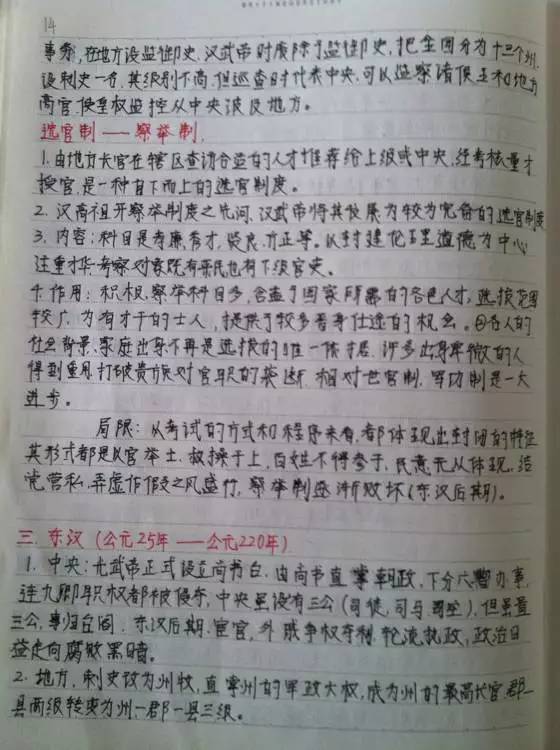 14
事务,在地方设监御史.汉武帝时废除了监御史,把全国分为十三个州,
设刺史一名,其级别不高,但巡查时代表中央,可以监察诸侯王和地方
高官,使皇权监控从中央波及地方。
选官制——察举制.
1.由地方长官在辖区查访合适的人才推荐给上级或中央,经考核量才
授官,是一种自下而上的选官制度。
2.汉高祖开察举制度之先河,汉武帝将其发展为较为完备的选官制度
3.内容:科目是孝廉秀才,贤良.方正等。以封建伦理道德为中心
注重才华.考察对象既有平民也有下级官吏。
4.作用:积极.察举科目多,含盖了国家所需的各色人才,选拔范围
较广.为有才干的士人,提供了较多晋身仕途的机会。②在人的
社会背景.家庭出身不再是选拔的唯一依据.许多出身卑微的人
得到重用,打破贵族对官职的垄断.相对世官制.军功制是一大
进步。
局限:从考试的方式和程序来看,都体现出封闭的特征
其形式都是以官举士.权操于上,百姓不得参于,民意无从体现.结
党营私.弄虚作假之风盛行,察举制逐渐败坏(东汉后期)。
三.东汉(公元25年——公元220年)
1.中央:光武帝正式设立尚书台.由尚书直掌朝政,下分六曹办事,
连九卿职权都被侵夺,中央虽设有三公(司徒,司马司空),但虽置
三公,事归台阁.东汉后期.宦官,外戚争权夺利.轮流执政,政治日
益走向腐败黑暗。
2.地方,刺史改为州牧,直掌州的军政大权,成为州的最高长官.郡一
县两级转变为州一郡一县三级。